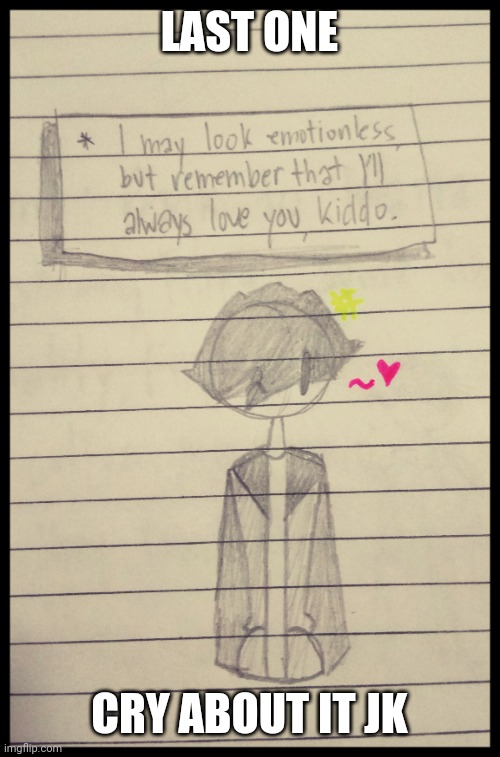 LAST ONE
* I may look emotionless,
but remember that I'll
always love you, kiddo.
CRY ABOUT IT JK
imgflip.com